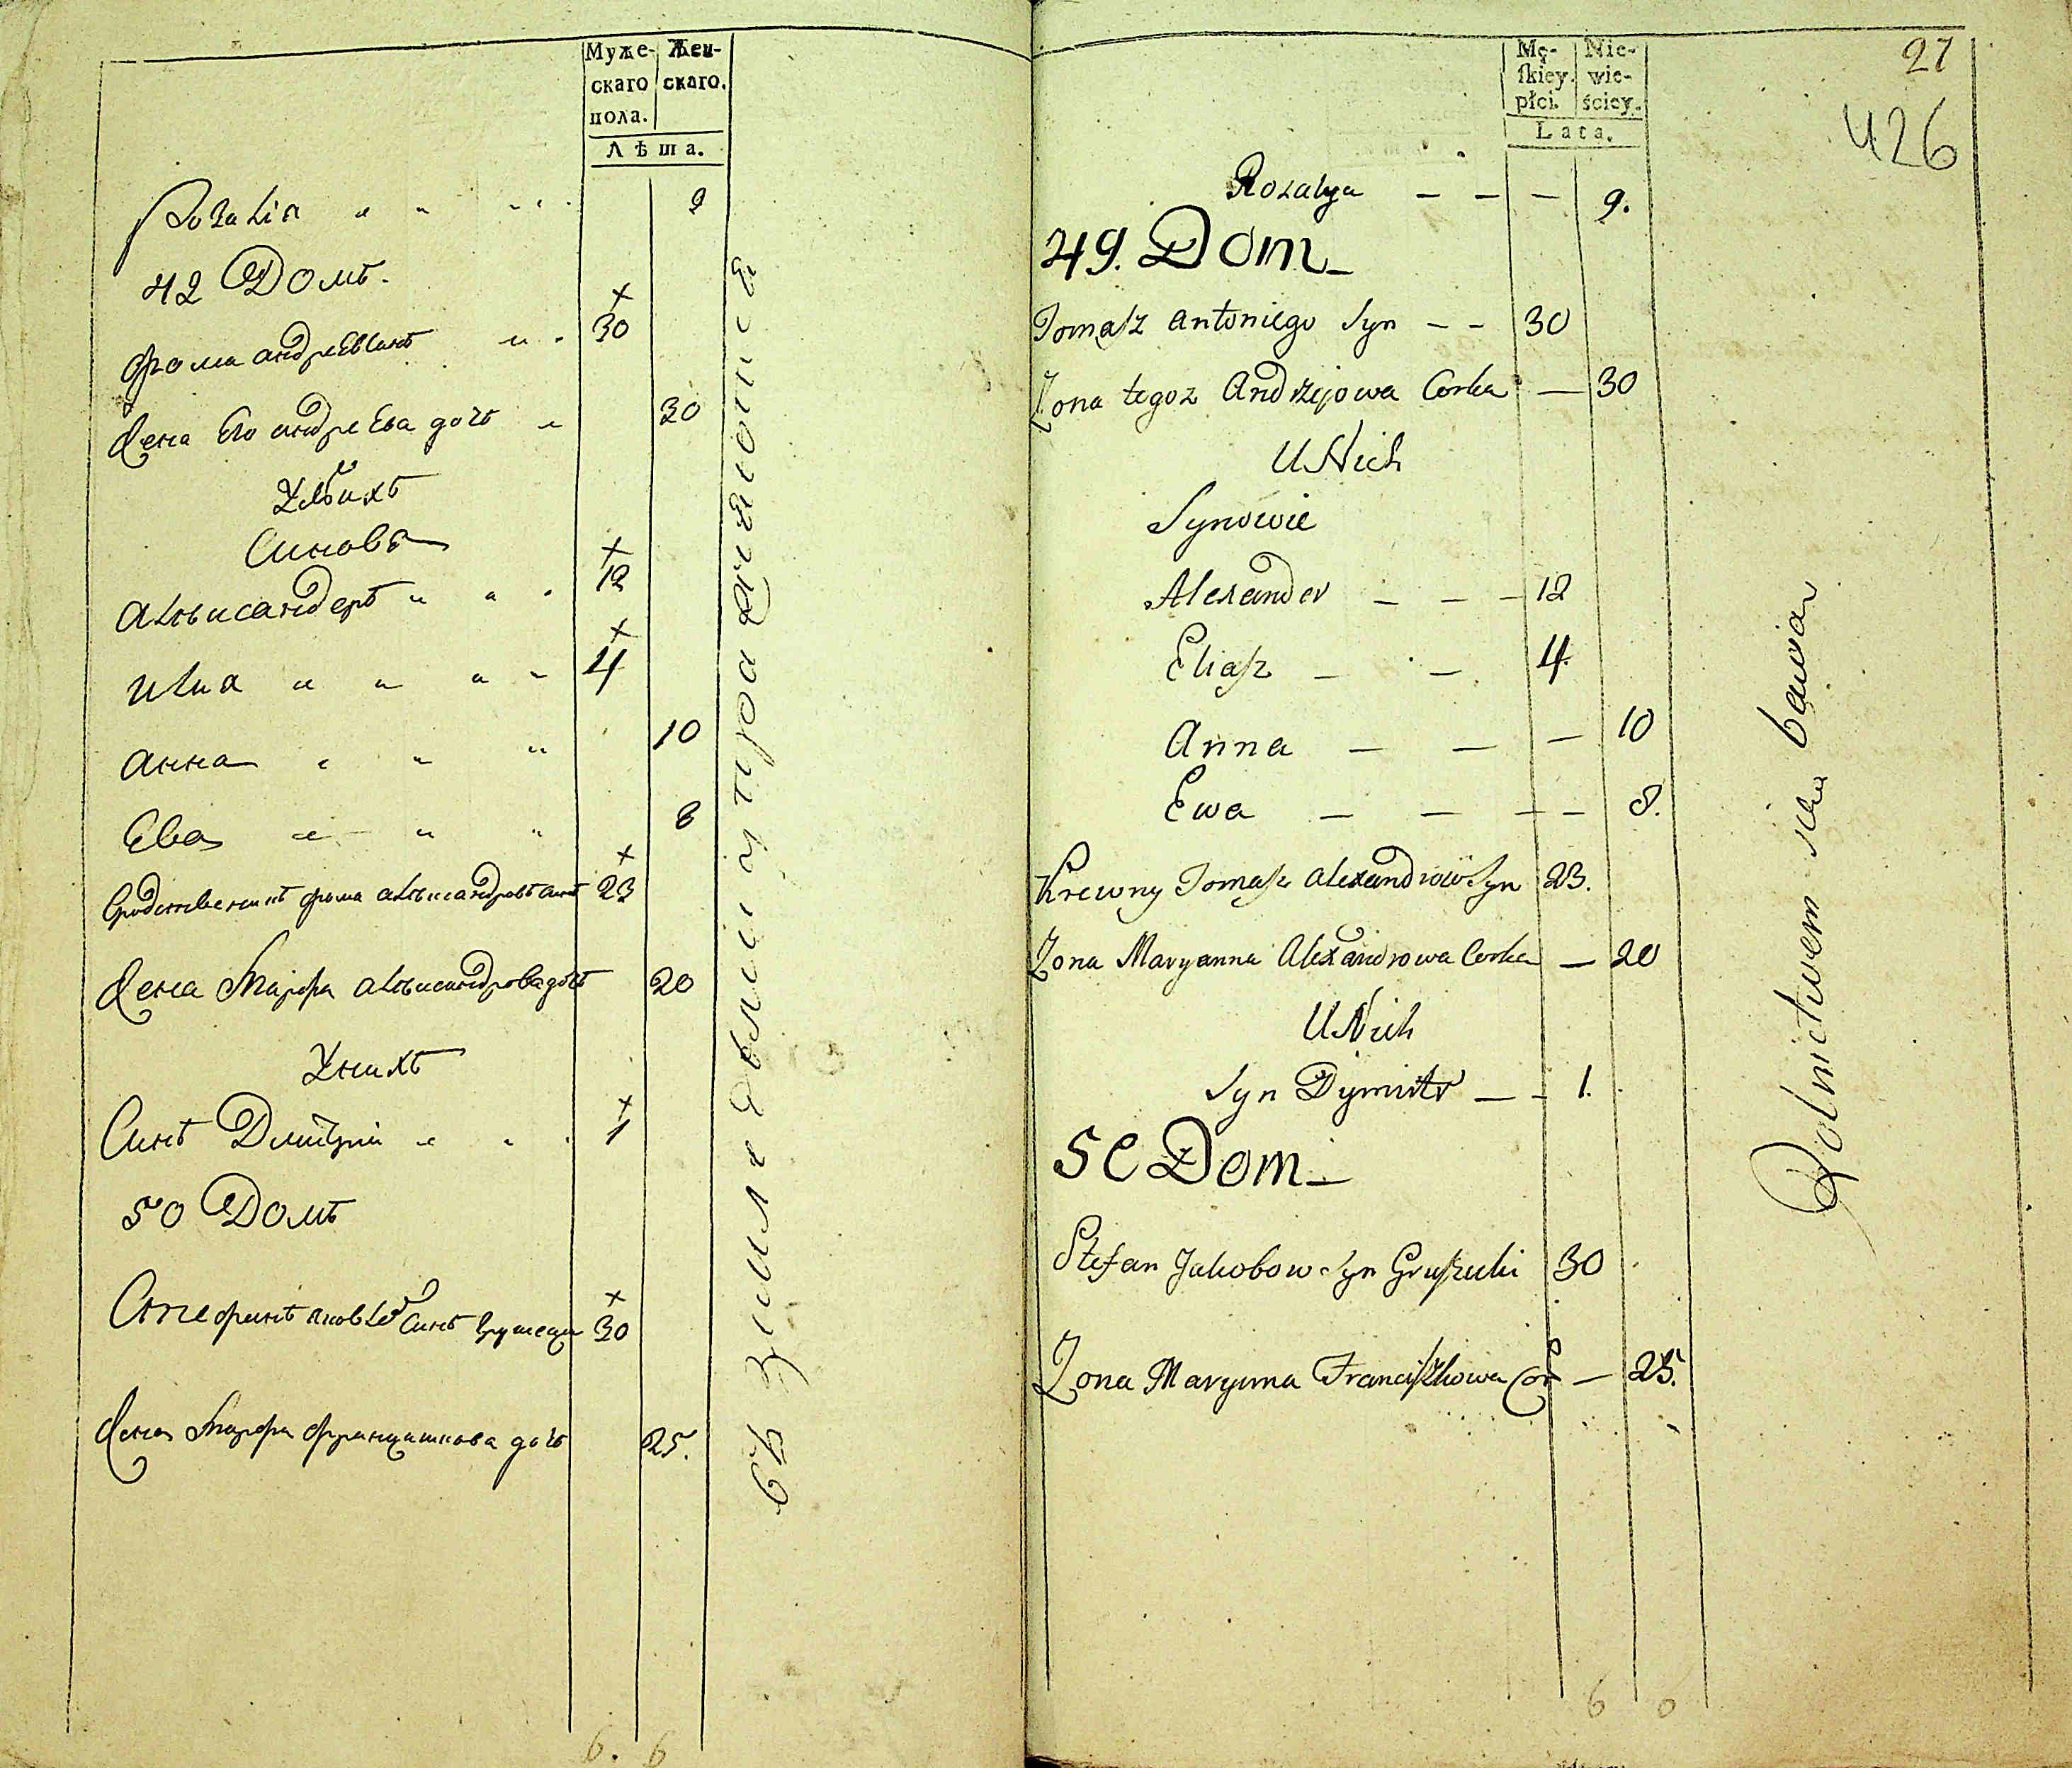 Муже- Жен-
скаго скаго.
пола.
Лѣта.
Розалія 9
42 Домъ.
Фома Андреевъ синъ 30
Жена Его Андреева дочь 30
У нихъ
Синовя
Александеръ 12
Илия 4
Анна 10
Ева 8
Сродственникъ Фома Александровъ синъ 23
Жена Марфа Александрова дочь 20
У нихъ
Синъ Дмитрій 1
50 Домъ
Стефанъ Яковлев Синъ 30
Жена Марфа Францишкова дочь 25.
6. 6
Mę- Nie-
ſkiey. wie-
płci. ściey.
Lata.
27
426
Rozalya — — — 9.
49. Dom
Tomaſz Antoniego Syn — — 30
Zona tegoz Andrzejowa Corka — 30
U Nich
Synowie
Alexander — — — 12
Eliaſz — — 4.
Anna — — — 10
Ewa — — — — 8.
Krewny Tomaſz Alexandrow Syn 23.
Zona Maryanna Alexandrowa Corka — 20
U Nich
Syn Dymitr — — 1.
50 Dom
Stefan Jakobow Syn Gruſzecki 30
Zona Maryanna Franciſzkowa Cor — 25.
Rolnictwem się bawią
6 0